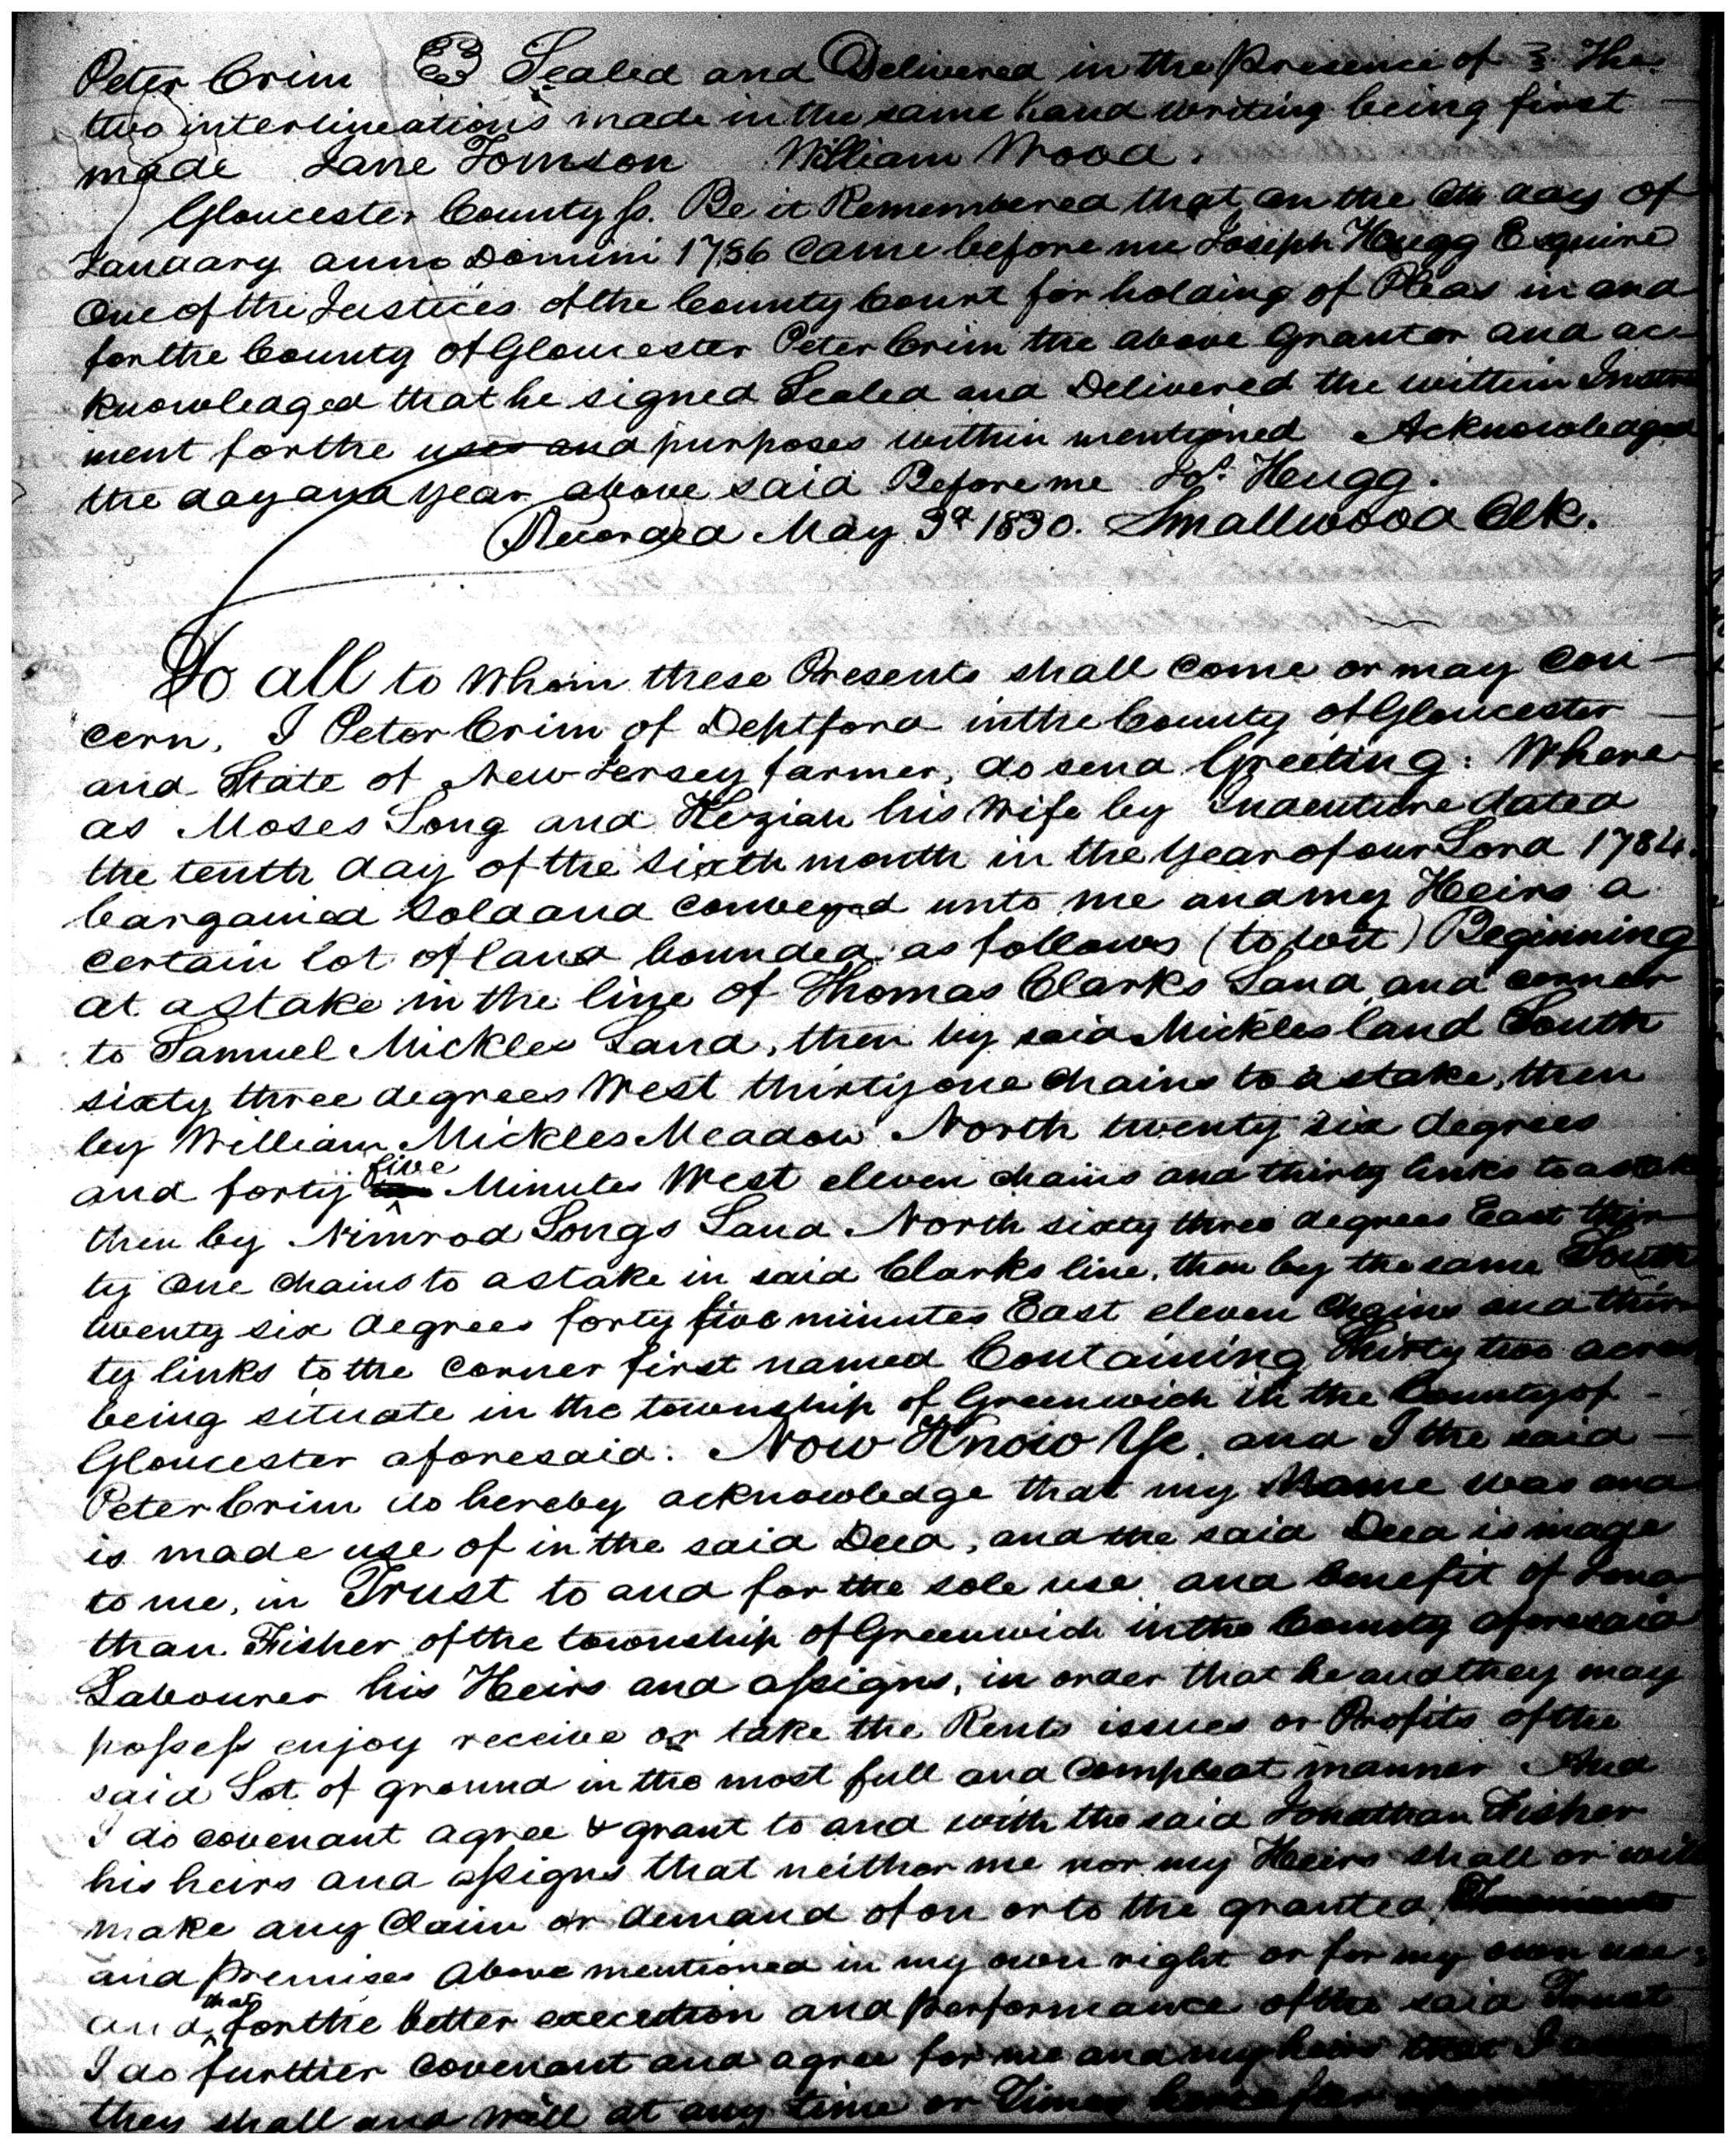 Peter Crim Sealed and Delivered in the Presence of The
two interlineations made in the same hand writing being first
made Jane Tomson William Wood.
Gloucester County ss. Be it Remembered that on the 6th day of
January anno Domini 1786 Came before me Joseph Hugg Esquire
One of the Justices of the County Court for holding of Pleas in and
for the County of Gloucester Peter Crim the above Grantor and ac-
knowledged that he signed Sealed and Delivered the within Instru
ment for the uses and purposes within mentioned Acknowledged
the day and year above said Before me Jos. Hugg.
Recorded May 3d 1830. Smallwood Clk.
To all to Whom these Presents shall come or may con-
cern, I Peter Crim of Deptford in the County of Gloucester
and State of New Jersey farmer, do send Greeting: Where
as Moses Long and Keziah his Wife by Indenture dated
the tenth day of the sixth month in the Year of our Lord 1784.
bargained Sold and conveyed unto me and my Heirs a
certain lot of land bounded as follows (to wit) Beginning
at a Stake in the line of Thomas Clarks Land and corner
to Samuel Mickles Land, then by said Mickles land South
sixty three degrees West thirty one chains to a stake, then
by William Mickles Meadow North twenty six degrees
and forty five Minutes West eleven chains and thirty links to a stake
then by Nimrod Longs Land North sixty three degrees East thir-
ty one chains to a stake in said Clarks line, then by the same South
twenty six degrees forty five minutes East eleven Chains and thir
ty links to the corner first named Containing Thirty two acres
being situate in the township of Greenwich in the County of
Gloucester aforesaid. Now Know Ye, and I the said
Peter Crim do hereby acknowledge that my Name was and
is made use of in the said Deed, and the said Deed is made
to me, in Trust to and for the sole use and benefit of Jona-
than Fisher of the township of Greenwich in the County aforesaid
Labourer his Heirs and assigns, in order that he and they may
possess enjoy receive or take the Rents issues or Profits of the
said Lot of ground in the most full and Compleat manner And
I do covenant agree & grant to and with the said Jonathan Fisher
his heirs and assigns that neither me nor my Heirs shall or will
make any Claim or demand of on or to the granted
and Premises Above mentioned in my own right or for my own use
and that for the better execution and performance of the said Trust
I do further covenant and agree for me and my heirs that I
they shall and will at any time or Times hereafter